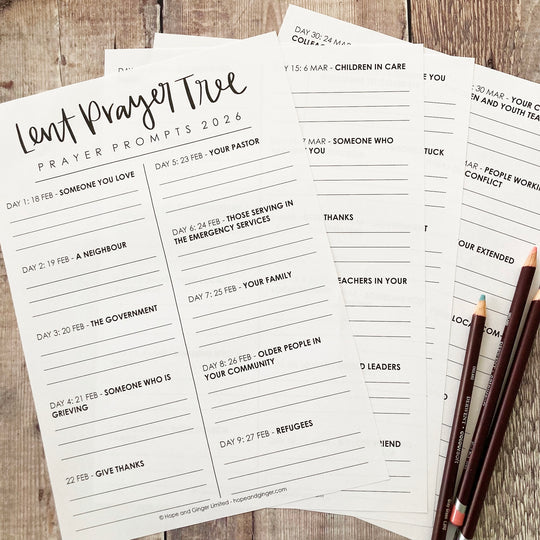 Lent Prayer Tree
PRAYER PROMPTS 2026
DAY 1: 18 FEB - SOMEONE YOU LOVE
DAY 2: 19 FEB - A NEIGHBOUR
DAY 3: 20 FEB - THE GOVERNMENT
DAY 4: 21 FEB - SOMEONE WHO IS
GRIEVING
22 FEB - GIVE THANKS
DAY 5: 23 FEB - YOUR PASTOR
DAY 6: 24 FEB - THOSE SERVING IN
THE EMERGENCY SERVICES
DAY 7: 25 FEB - YOUR FAMILY
DAY 8: 26 FEB - OLDER PEOPLE IN
YOUR COMMUNITY
DAY 9: 27 FEB - REFUGEES
© Hope and Ginger Limited - hopeandginger.com
15: 6 MAR - CHILDREN IN CARE
7 MAR - SOMEONE WHO
YOU
THANKS
TEACHERS IN YOUR
LEADERS
FRIEND
DAY 30: 24 MAR
YOU
TUCK
30 MAR - YOUR
AND YOUTH
MAR - PEOPLE WORKING
CONFLICT
YOUR EXTENDED
LOCAL COM-
DERWENT